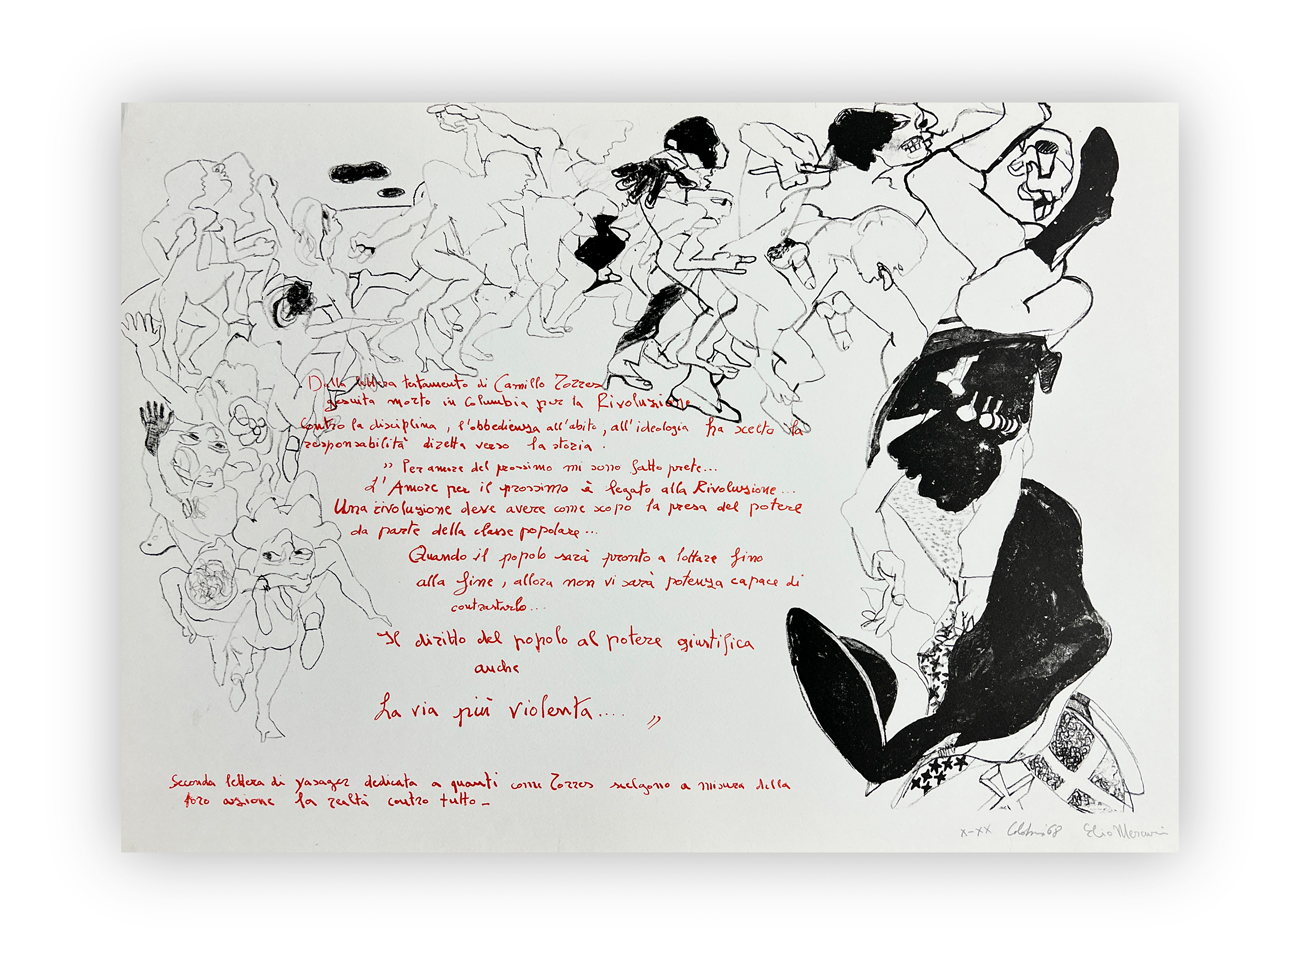 Dalla lettera testamento di Camillo Torres
gesuita morto in Columbia per la Rivoluzione
contro la disciplina, l'obbedienza all'abito, all'ideologia ha scelto la
responsabilità diretta verso la storia.
" Per amore del prossimo mi sono fatto prete...
L'Amore per il prossimo è legato alla Rivoluzione...
Una rivoluzione deve avere come scopo la presa del potere
da parte della classe popolare...
Quando il popolo sarà pronto a lottare fino
alla fine, allora non vi sarà potenza capace di
contrastarlo...
Il diritto del popolo al potere giustifica
anche
La via più violenta.... "
Seconda lettera di yasager dedicata a quanti come Torres scelgono a misura della
loro azione la realtà contro tutto_
x-xx '68 Elio Mercuri